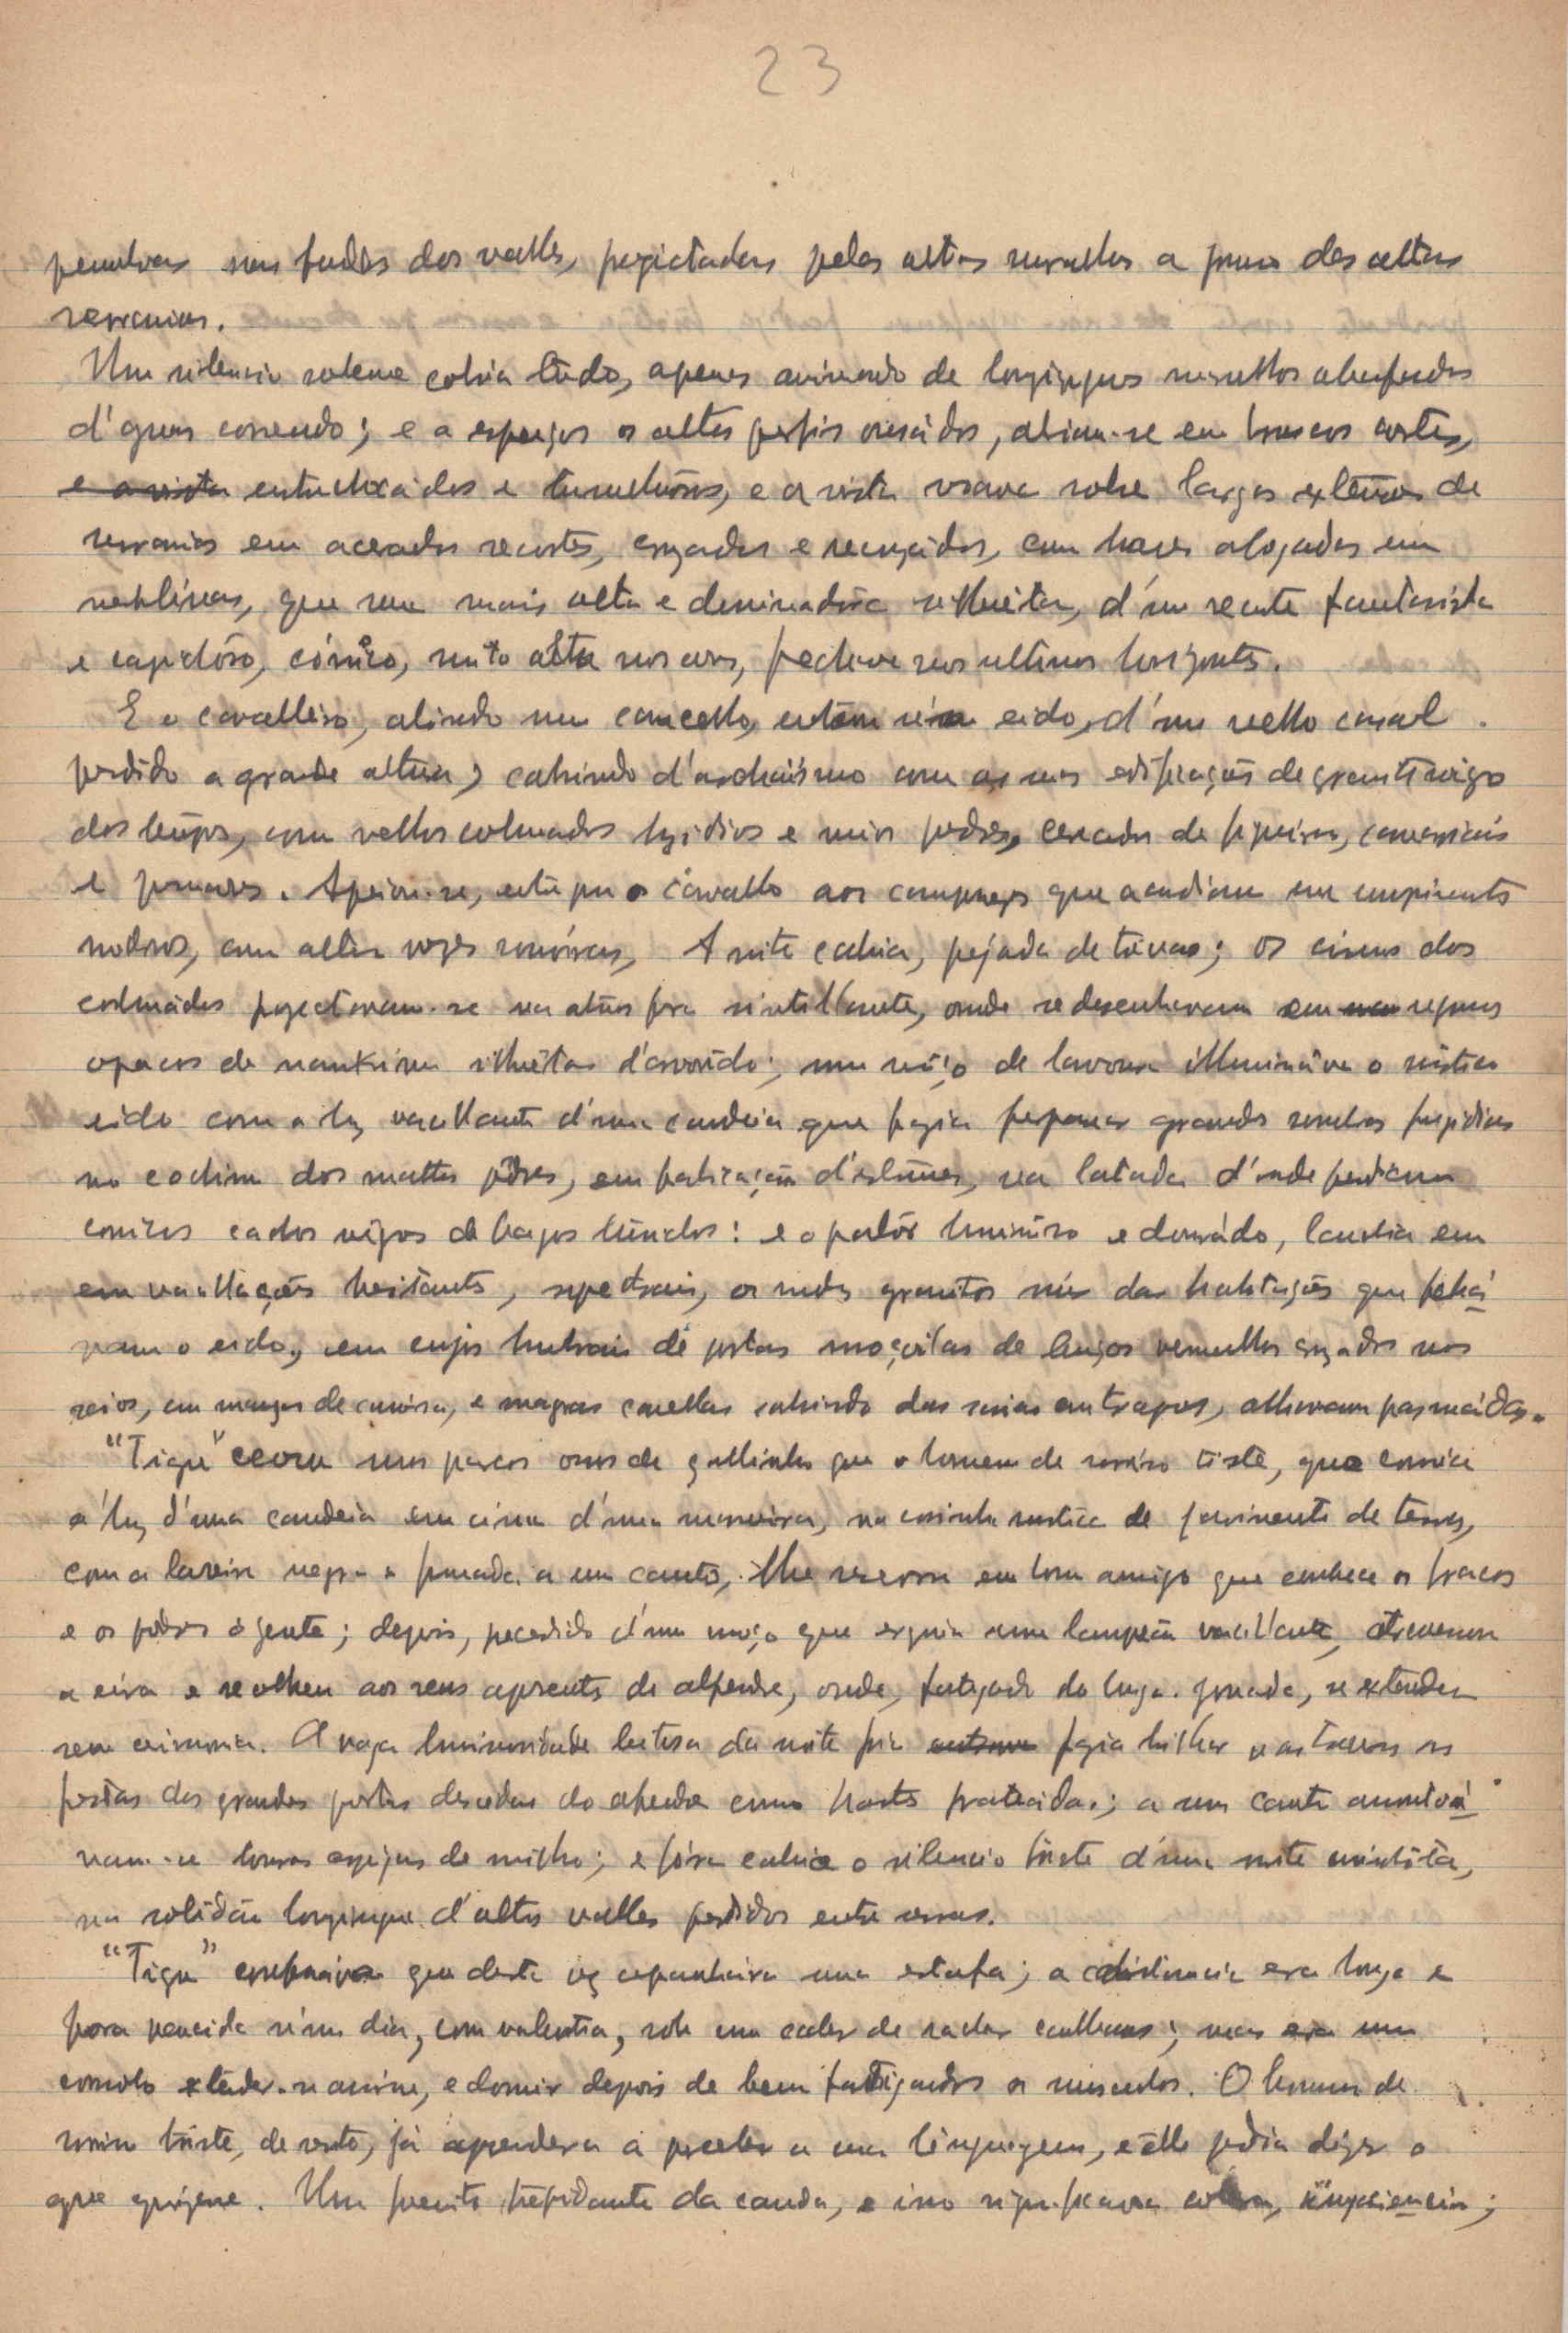 23
nos fundos dos valles, projectadas pelas altas muralhas a prumo das altas
serranias.
Um silencio solene cahia tudo, apenas animado de longinquos murulhos abafados
d'aguas correndo; e a espaços os altos perfis ouriçados, abriam-se em bruscos cortes,
e a vista e tumultuosos, e a vista voava sobre largas extensões de
serranias em acerados recortes, cruzadas e recruzadas, com bases afogadas em
neblinas, que uma mais alta e dominadora silhueta, d'um recorte fantasista
e caprichoso, cónico, muito alta nos ares, fechava nos ultimos horizontes.
E o cavalleiro, abrindo um cancello, entrou n'um eido, d'um velho casal
perdido a grande altura, cahindo d'archaismo com as suas edificações de granito negro
dos tempos, com velhos colmados e podres, cercados de figueiras,
e pomares. Apeiou-se, entregou o cavallo aos camponezes que acudiam em cumprimentos
rudosos, com altas vozes sonóras, A noite cahia, pejada de trevas; os cimos dos
colmados projectavam-se na atmosfera sintillante, onde se desenhavam em
opacos de nankim silhuetas d'arvoredo; um moço de lavoura illuminava o rustico
eido com a luz vacillante d'uma candeia que fazia perpassar grandes sombras fugidias
no cochim dos mattos podres, em fabricação d'estrumes, na latada d'onde pendiam
cachos negros de bagos tumidos: e o pallór luminoso e dourado, lambia em
em vacillações hesitantes, spectrais, os rudes granitos nús das habitações que fechá-
vam o eido, em cujos humbrais de portas moçoilas de lenços vermelhos cruzados nos
seios, em mangas de camisa, e magras canellas sahindo das saias em trapos, olhavam pasmádas.
"Tigre" ceou uns parcos ossos de gallinha que o homem de sorriso triste, que comia
á luz d'uma candeia em cima d'uma masseira, na cosinha rustica de pavimento de terra,
com a lareira negra e fumada a um canto, lhe reservou em bom amigo que conhece os fracos
e os podres á gente; depois, precedido d'um moço que erguia um lampeão vacillante, atravessou
a eira e recolheu aos seus aposentos de alpendre, onde, fatigado da longa jornada, se extendeu
sem cerimonia. A vaga luminosidade leitosa da noite fria fazia brilhar nas trevas as
frestas das grandes portas do alpendre como hastes prateadas; a um canto amontoá-
vam-se louras espigas de milho; e fóra cahia o silencio triste d'uma noite,
na solidão longinqua d'altos valles perdidos entre serras.
"Tigre" confessava que desta vez apanhaira uma estafa; a distancia era longa e
fora vencida n'um dia, com valentia, sob um calor de rachar calhaus; mas era um
consolo extender-se assim, e dormir depois de bem fatigados os musculos. O homem de
sorriso triste, de resto, já aprendera a perceber a sua linguagem, e elle podia dizer o
que quizesse. Um frenito trepidante da cauda, e isso significava colera, impaciencia;